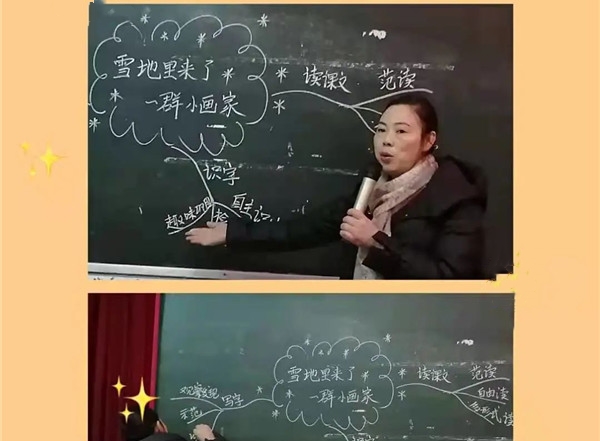 雪地里来了
一群小画家
读课文 范读
识字
趣味巩固
自主
雪地里来了
一群小画家
读课文 范读
自由读
多形式读
写字
观察发现
示范